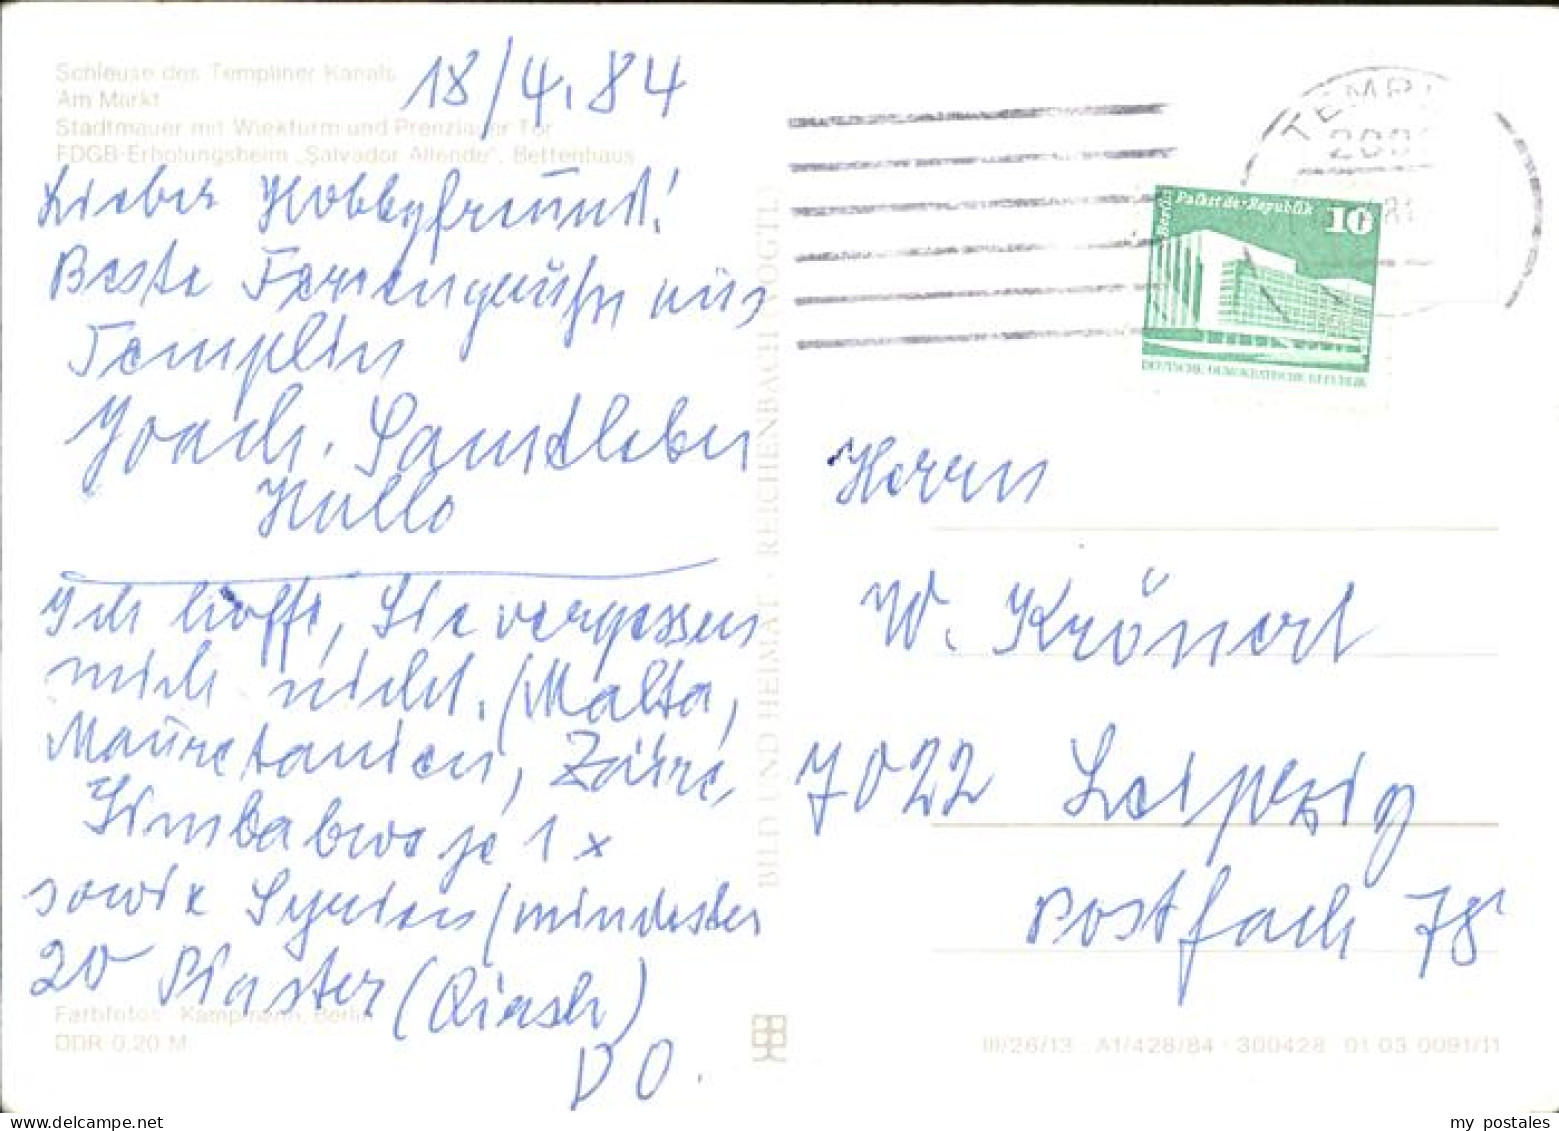 Schleuse des Templiner Kanals
Am Markt
Stadtmauer mit Wiekturm und Prenzlauer Tor
FDGB-Erholungsheim „Salvador Allende", Bettenhaus
18/4.84
Lieber Hobbyfreund!
Beste Feriengrüße aus
Templin
Joach.
Hallo
Ich hoffe, Sie vergessen
mich nicht. (Malta,
Mauretanien, Zaire,
Simbabwe je 1x
sowie Syrien (mindesten
20 Piaster (Qirsh)
Farbfotos: Kampmann, Berlin
DDR 0,20 M
BILD UND HEIMAT · REICHENBACH (VOGTL)
TEMPLIN
Berlin Palast der Republik 10
DEUTSCHE DEMOKRATISCHE REPUBLIK
Herrn
W. Krönert
7022 Leipzig
Postfach 78
III/26/13 · A1/428/84 · 300428 01 03 0091/11
my postales